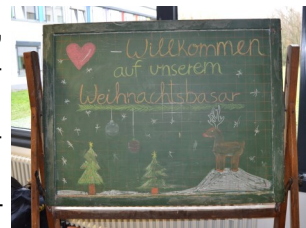 - Willkommen
auf unserem
Weihnachtsbasar